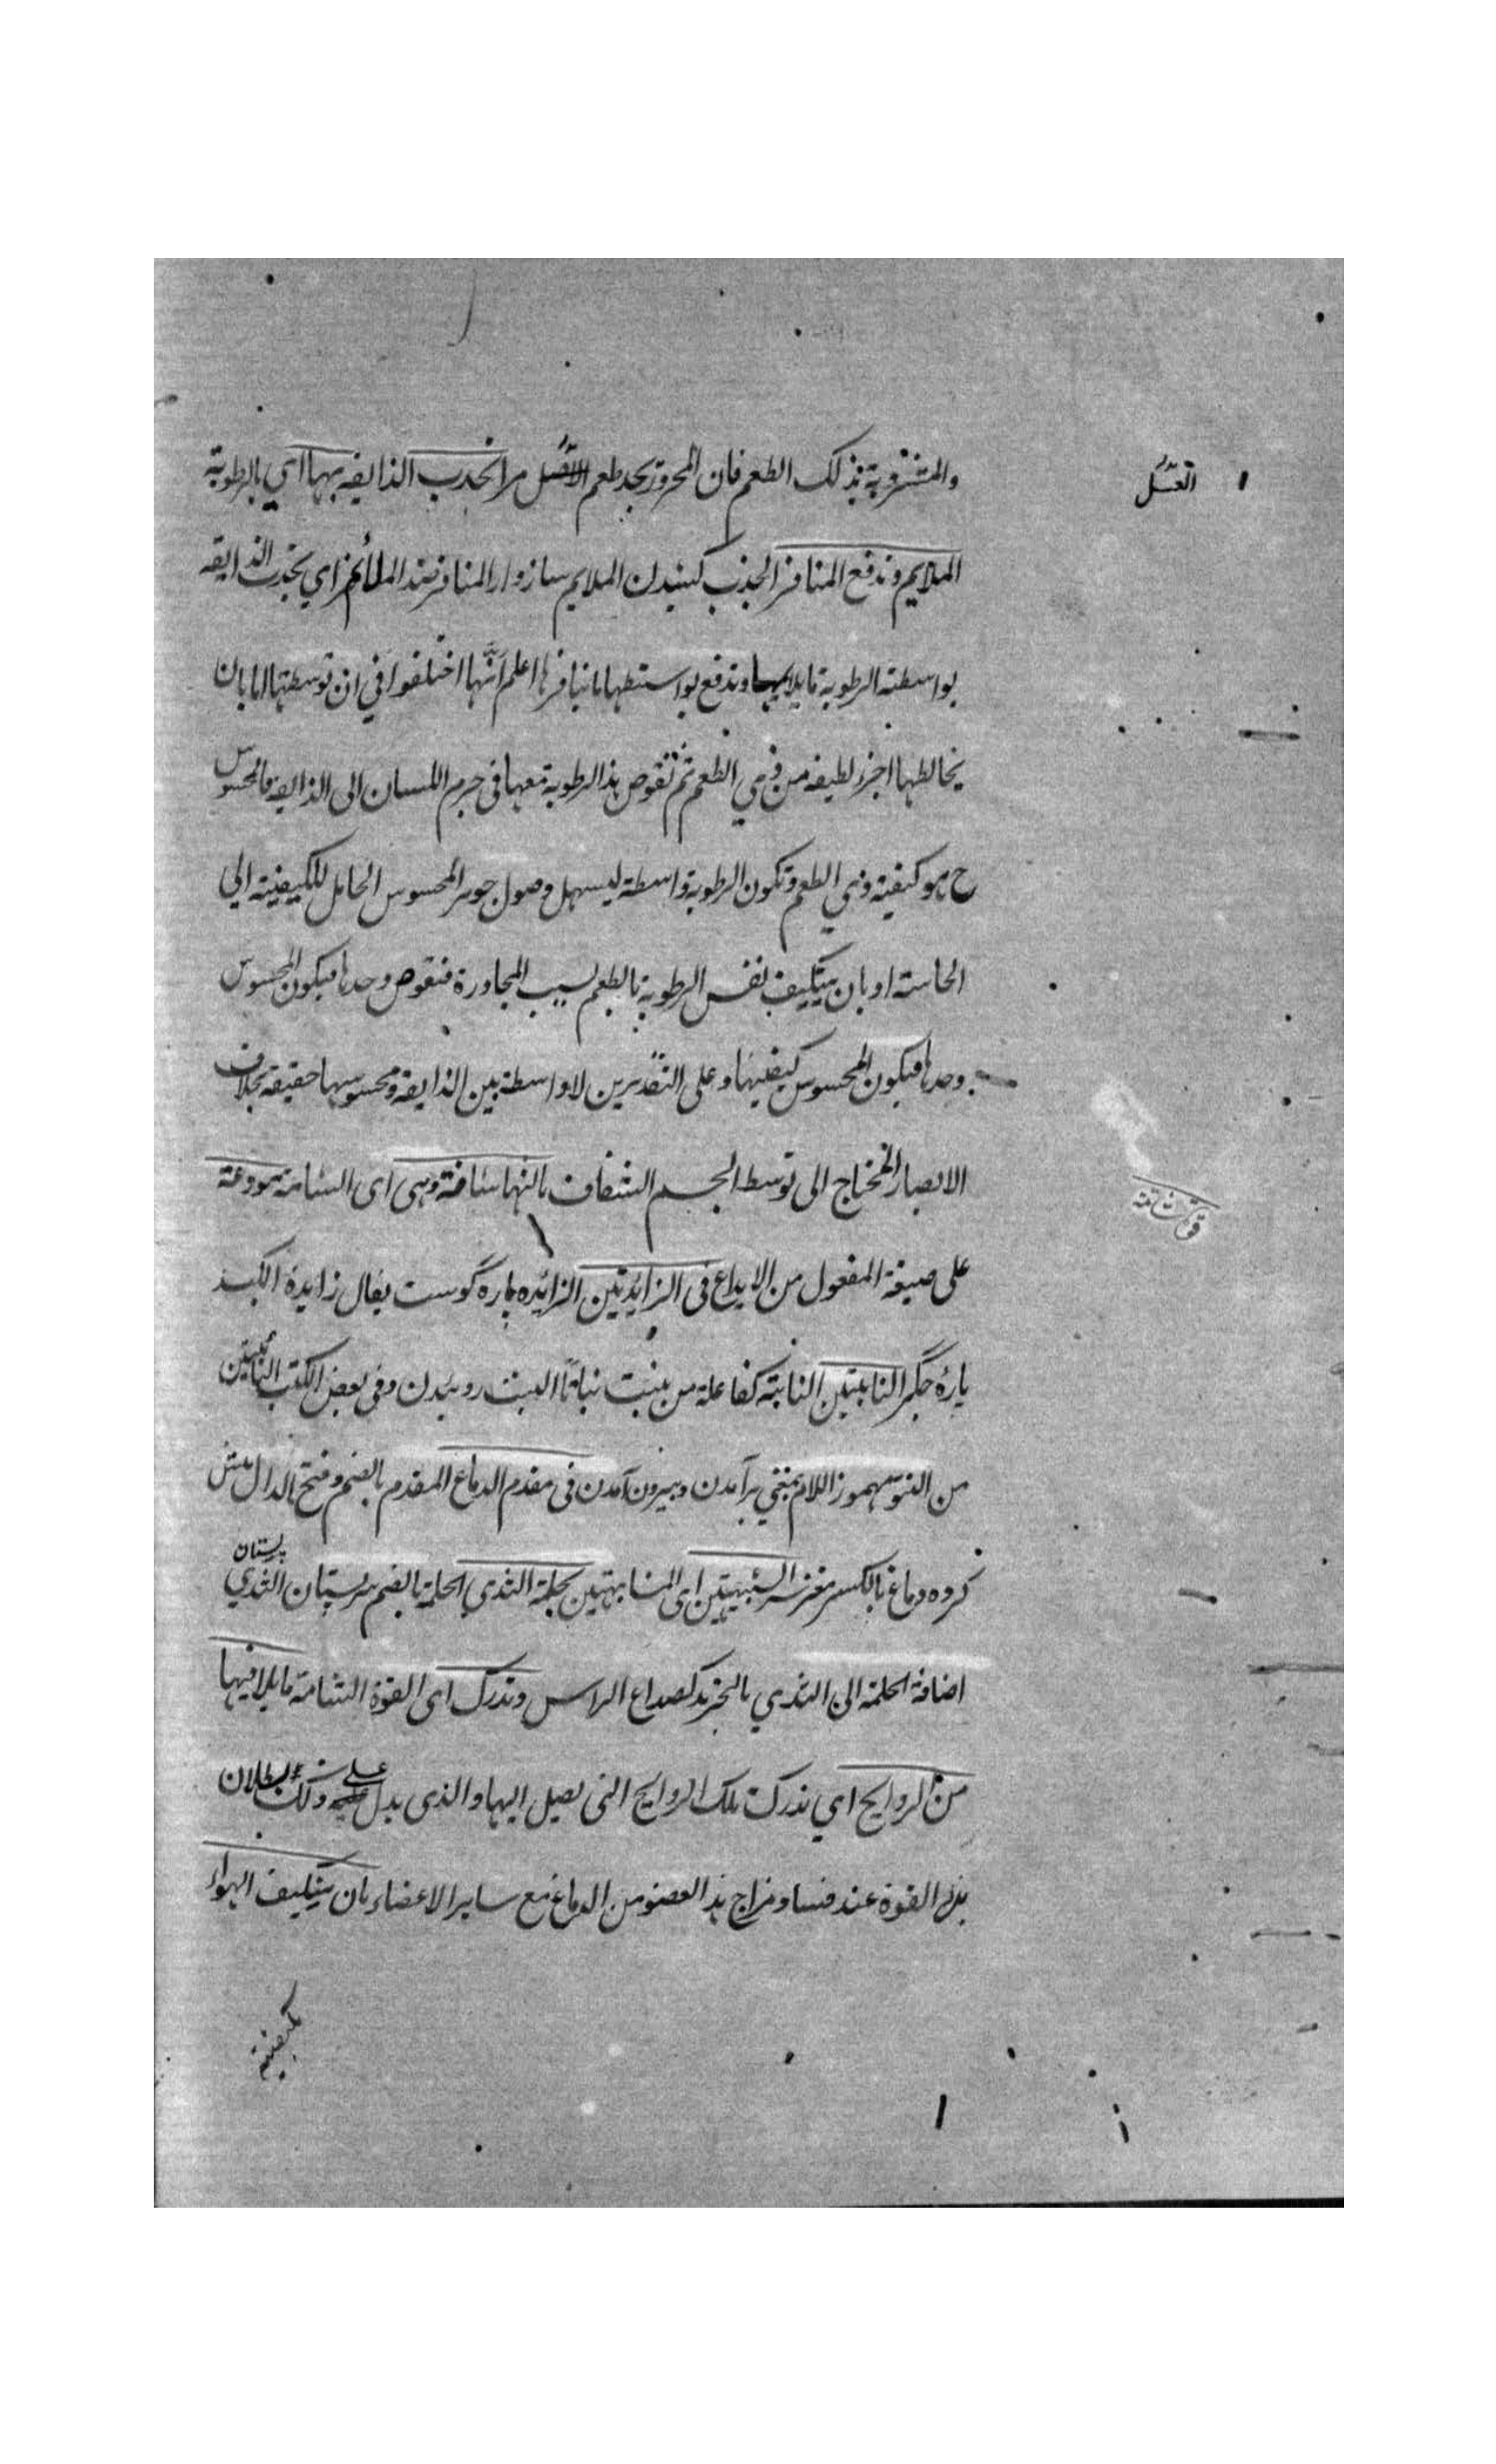 والمتشربة بذلك الطعم فان المحرور يجد طعم العسل مرا تجذب الذايقه بهما اي بالرطوبة
العسل
الملايم وتدفع المنافر الجذب كشيدن الملايم سازوار المنافر ضد الملائم اي تجذب الذايقه
بواسطته الرطوبة ما يلايمها وتدفع بواسطتها ما ينافرها اعلم انهم اختلفوا في ان توسطها اما بان
يخالطها اجزاء لطيفه من ذي الطعم ثم تغوص هذا الرطوبة معها في جرم اللسان الى الذايقه فالمحسوس
ح هو كيفية ذي الطعم وتكون الرطوبة واسطة ليسهل وصول جوهر المحسوس الحامل للكيفيته الي
الحاسته او بان يتكيف نفس الرطوبة بالطعم لسبب المجاورة فتغوص وحدها فيكون المحسوس
وحدها فيكون المحسوس كيفيتها وعلى التقديرين لا واسطة بين الذايقة ومحسوسها حقيقة بخلاف
الابصار المحتاج الى توسط الجسم الشفاف بالنها شامة وهي اى الشامة مودعة
قوت شامته
على صيغة المفعول من الايداع فى الزايدتين الزائده پاره گوست يقال زايدة الكبد
پارۀ جگر النابتتين النابتة كفاعلة من ينبت نباتاً النبت روئيدن وفى بعض الكتب الناتئتين
من النتو مهموز اللام بمعني برآمدن وبيرون آمدن فى مقدم الدماغ المقدم بالضم وفتح الدال پيش
كروه دماغ بالكسر مغز سر الشبيهتين اى المشابهتين بحلمة الثدي الحلمة بالضم سر پستان الثدي پستان
اضافة الحلمة الى الثدي بالتجريد كصداع الراس وتدرك اى القوة الشامة ما يلاقيها
من الروايح اي تدرك تلك الروايح التى تصل اليها والذى يدل على ذلك بطلان
هذه القوة عند فساد مزاج هذا العضو من الدماغ مع ساير الاعضاء بان يتكيف الهواء
بكيفيته